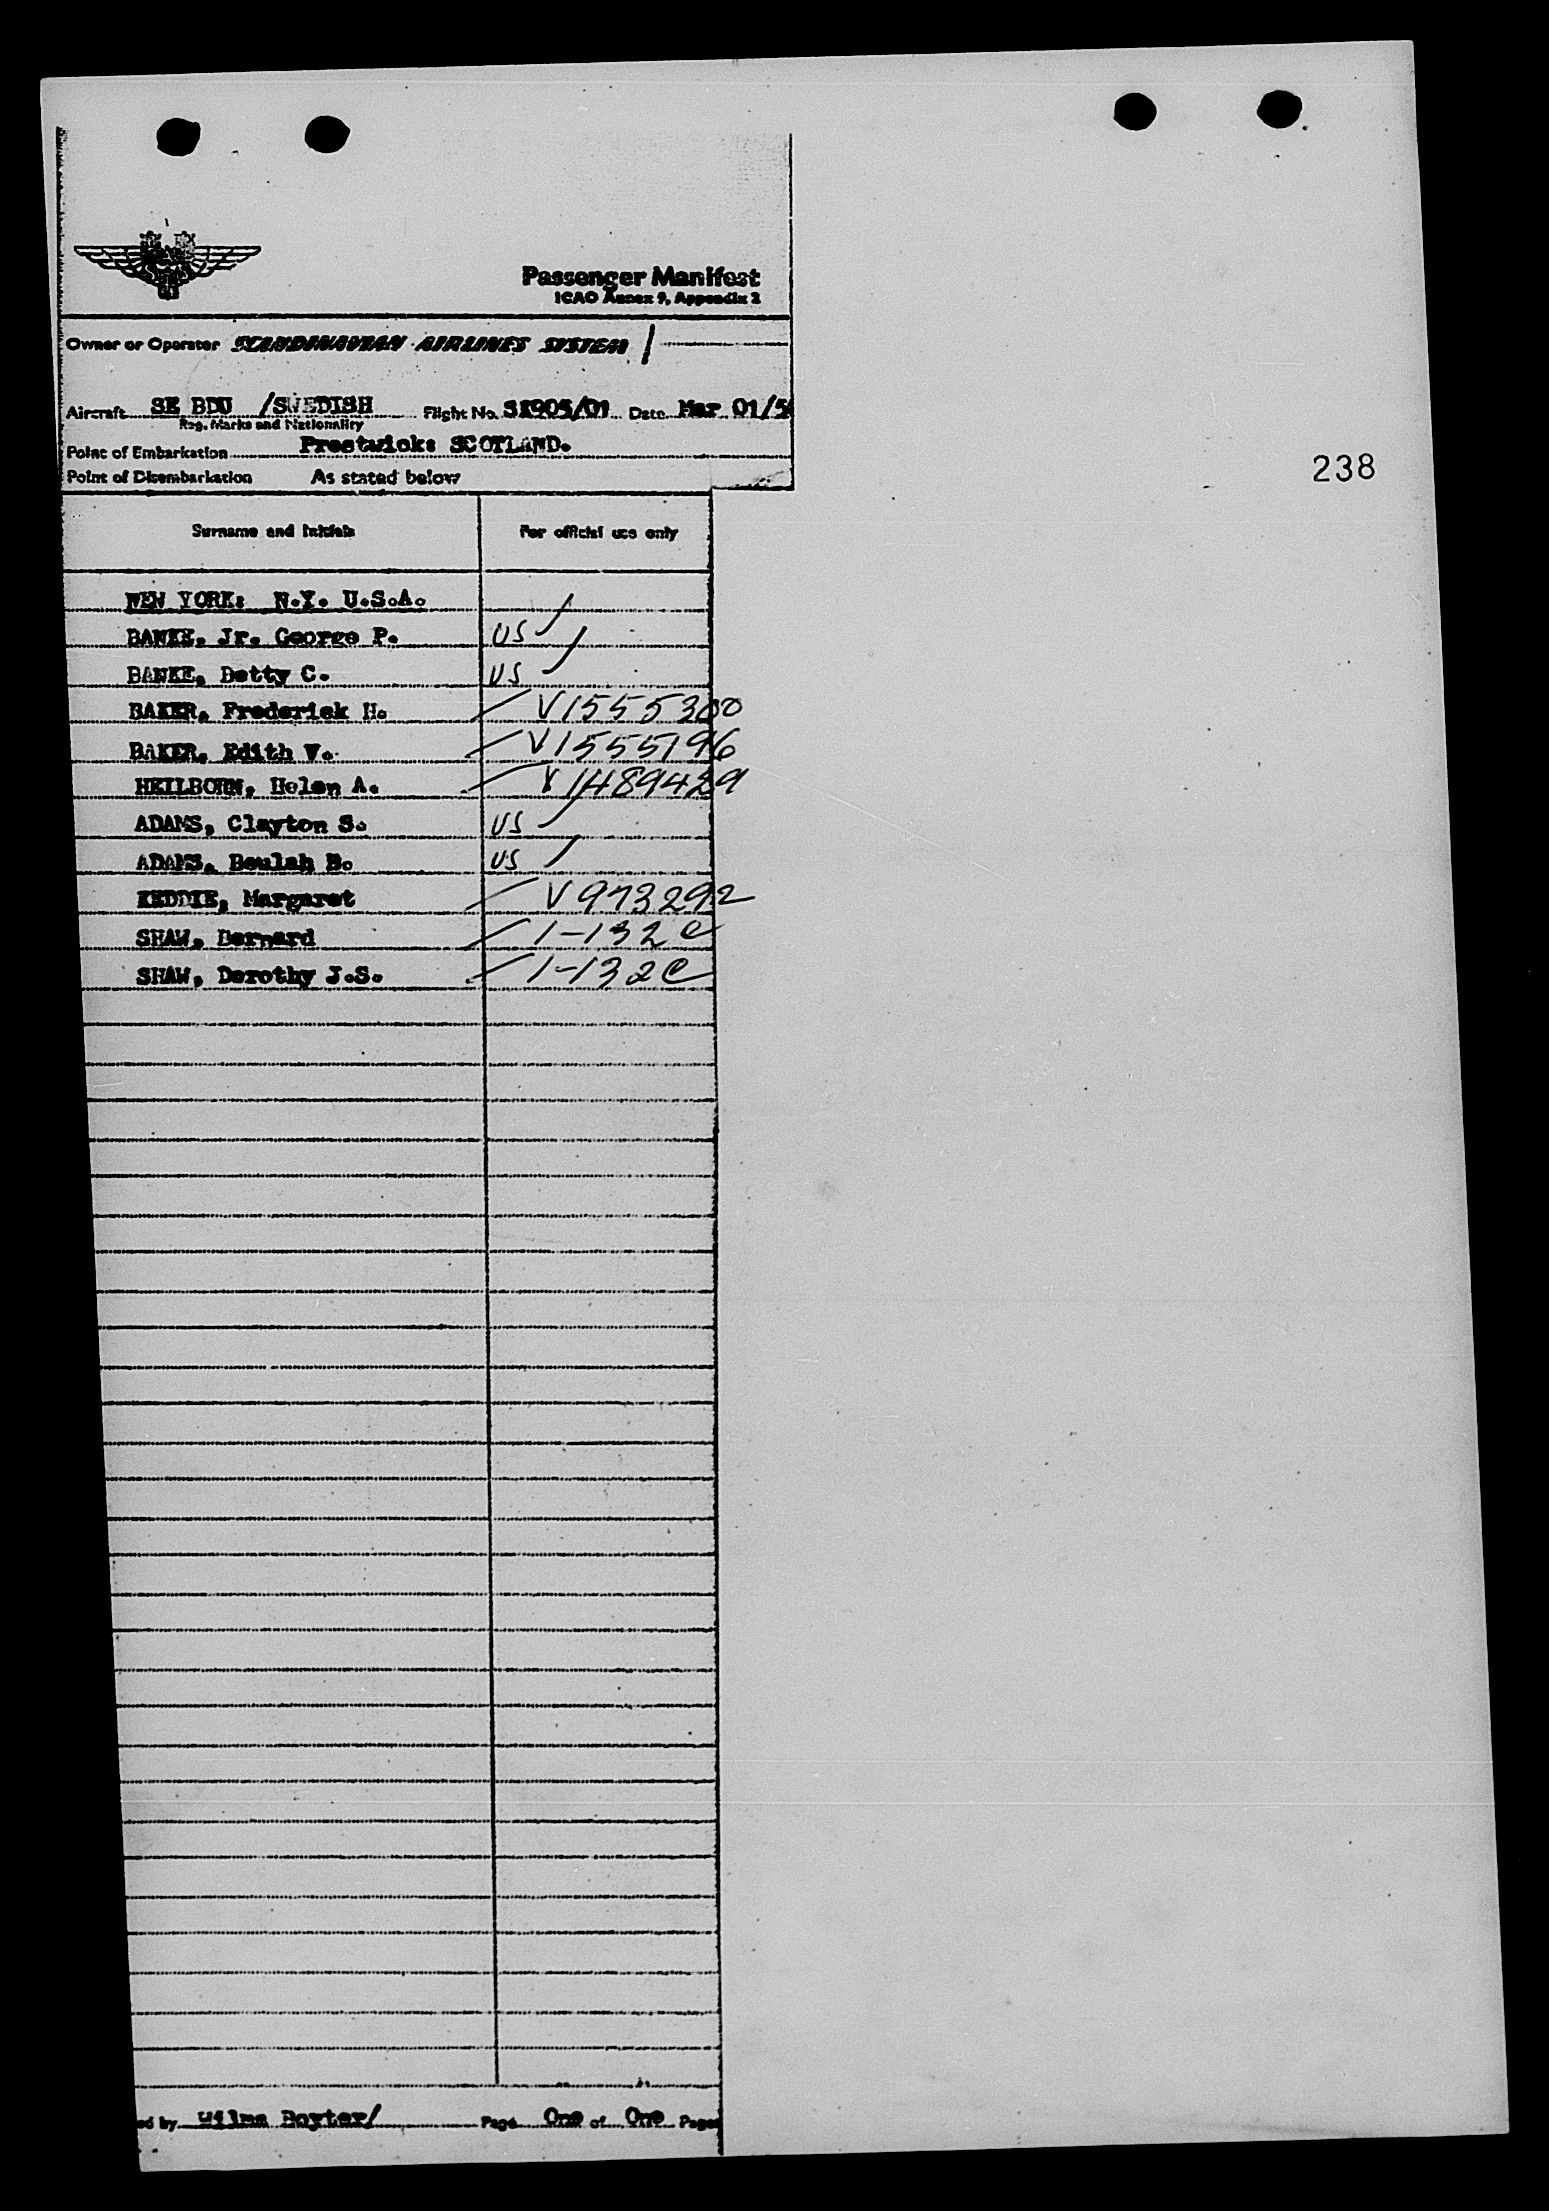 Passenger Manifest
ICAO Annex 9, Appendix 2
Owner or Operator SCANDINAVIAN AIRLINES SYSTEM /
Aircraft SE BDU /SWEDISH Flight No. SK905/01 Date Mar 01/5
Reg. Marks and Nationality
Point of Embarkation Prestwick: SCOTLAND.
Point of Disembarkation As stated below
238
Surname and Initials For official use only
NEW YORK: N.Y. U.S.A.
BANKE, Jr. George P. US
BANKE, Betty C. US
BAKER, Frederick H. V1555300
BAKER, Edith V. V1555196
HEILBORN, Helen A. V1489429
ADAMS, Clayton S. US
ADAMS, Beulah B. US
KEDDIE, Margaret V973292
SHAW, Bernard 1-132C
SHAW, Dorothy J.S. 1-132C
ed by Wilma Boyter/ Page One of One Pages